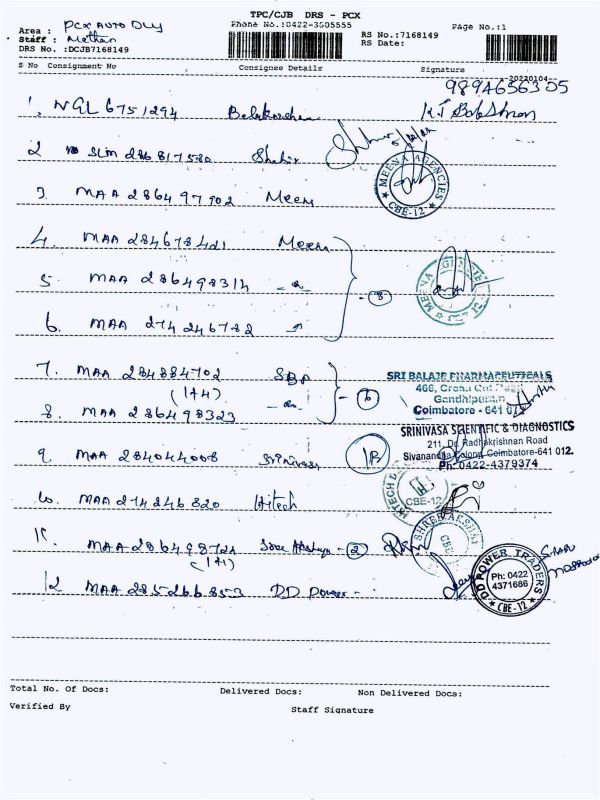 TPC/CJB DRS - PCX
Area : PCX AUTO DLY
Phone No.:0422-3505555
Page No.:1
Staff : Methan
RS No.:7168149
DRS No. :DCJB7168149
RS Date:
S No Consignment No Consignee Details Signature
20220104
9894656305
1. NGL 6751294
2 SLM 286817530
3. MAA 286497902 Meena
4. MAA 284678421 Meena
5. MAA 286498314
6. MAA 274246782
7. MAA 284884702 SBP
(1+4)
8. MAA 286498323
9. MAA 284044008 Srinivasa 1B
10. MAA 274246820 Hitech
11. MAA 286498724 2
(1+1)
12 MAA 285266853 DD Power -
MEENA AGENCIES
CBE-12
MEENA AGENCIES
SRI BALAJE PHARMACEUTICALS
466, Cross Cut Road
Gandhipuram
Coimbatore - 641 012
SRINIVASA SCIENTIFIC & DIAGNOSTICS
211, Dr. Radhakrishnan Road
Sivananda Colony, Coimbatore-641 012.
Ph: 0422-4379374
HITECH
CBE-12
SHREE AKSHAYA
CBE
DD POWER TRADERS
Ph: 0422
4371686
CBE-12
Total No. Of Docs: Delivered Docs: Non Delivered Docs:
Verified By Staff Signature